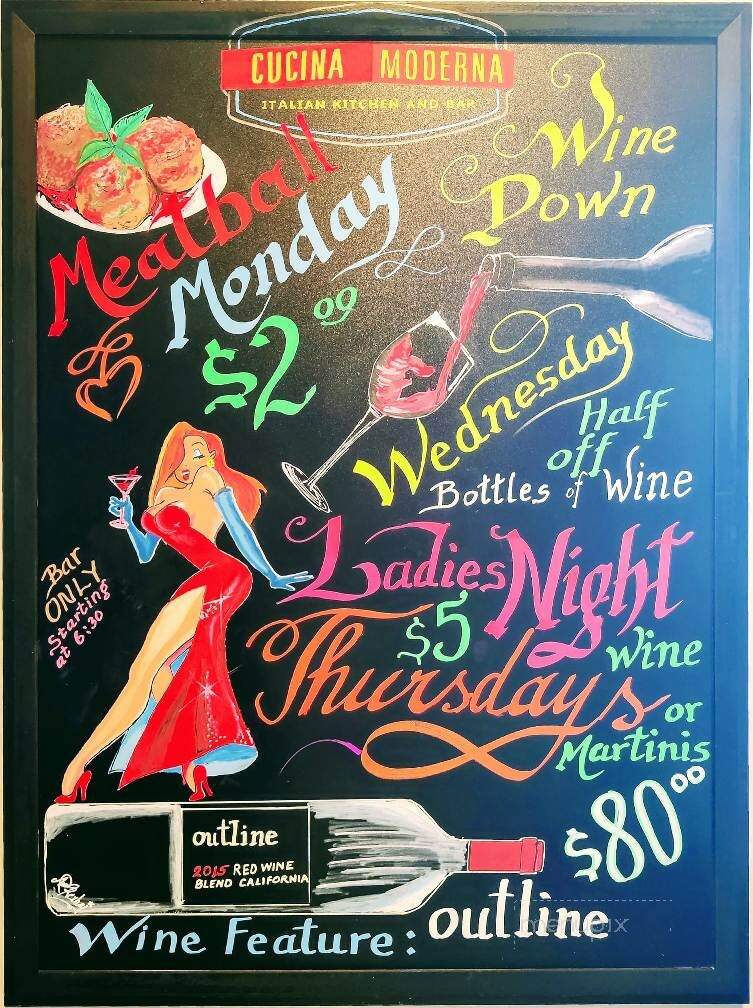 CUCINA MODERNA
ITALIAN KITCHEN AND BAR
Meatball
Monday
$2 09
Wine
Down
Wednesday
Half
off
Bottles of Wine
Ladies Night
Thursdays
$5
Wine
or
Martinis
Bar
ONLY
Starting
at 6:30
$80 00
outline
2015 RED WINE
BLEND CALIFORNIA
Wine Feature: outline